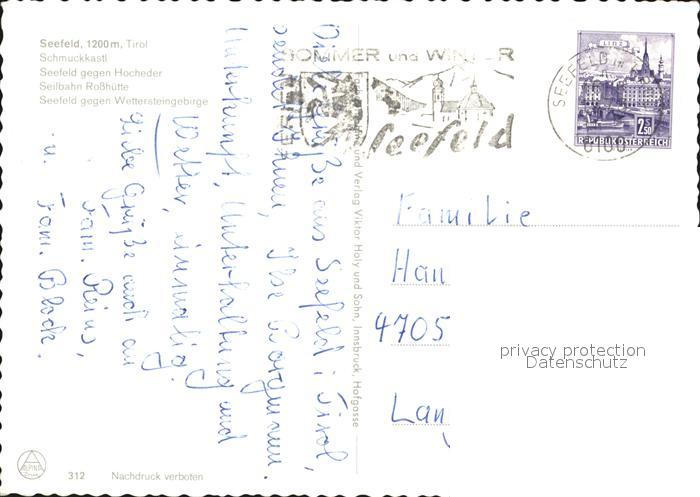 Seefeld, 1200 m, Tirol
Schmuckkastl
Seefeld gegen Hocheder
Seilbahn Roßhütte
Seefeld gegen Wettersteingebirge
SOMMER und WINTER
Seefeld
SEEFELD IN
6100
LINZ
2.50
REPUBLIK ÖSTERREICH
Grüße aus Seefeld i. Tirol,
sendet Ihnen, Ilse
Unterkunft, Unterhaltung und
Wetter, einmalig.
Liebe Grüße auch an
Fam. Reins,
u. Fam. Block.
und Verlag Viktor Holy und Sohn, Innsbruck, Hofgasse
Familie
Han
4705
Lan
privacy protection
Datenschutz
ALPINA
312 Nachdruck verboten